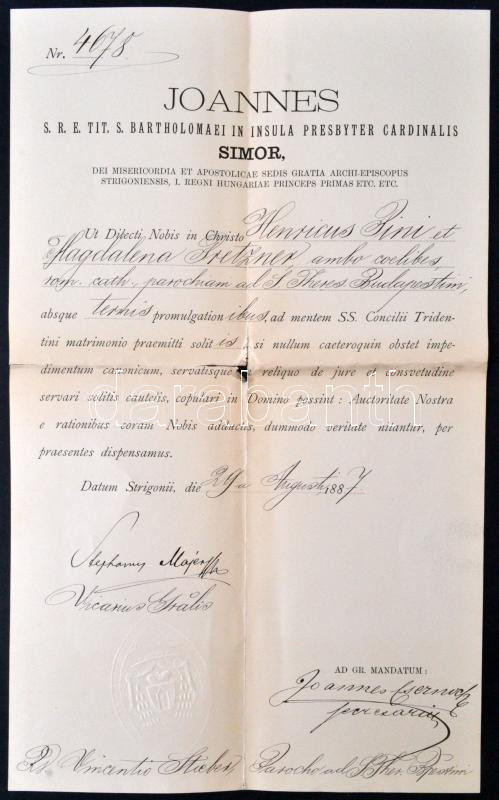 Nr. 4678.
JOANNES
S. R. E. TIT. S. BARTHOLOMAEI IN INSULA PRESBYTER CARDINALIS
SIMOR,
DEI MISERICORDIA ET APOSTOLICAE SEDIS GRATIA ARCHI-EPISCOPUS
STRIGONIENSIS, I. REGNI HUNGARIAE PRINCEPS PRIMAS ETC. ETC.
Ut Dilecti Nobis in Christo Henricus Pini et
Magdalena Gritzner ambo coelibes
rom. cath., parochiam ad S. Theres. Budapestini,
absque ternis promulgationibus, ad mentem SS. Concilii Triden-
tini matrimonio praemitti solitis, si nullum caeteroquin obstet impe-
dimentum canonicum, servatisque reliquo de jure et consvetudine
servari solitis cautelis, copulari in Domino possint: Auctoritate Nostra
e rationibus coram Nobis adductis, dummodo veritate nitantur, per
praesentes dispensamus.
darabanth
Datum Strigonii, die 29a Augusti 1887
Stephanus Majer
Vicarius Gralis
AD GR. MANDATUM:
Joannes Csernoch
secretarius
Vincentio Stieber, Parocho ad S. Ther. Pestini